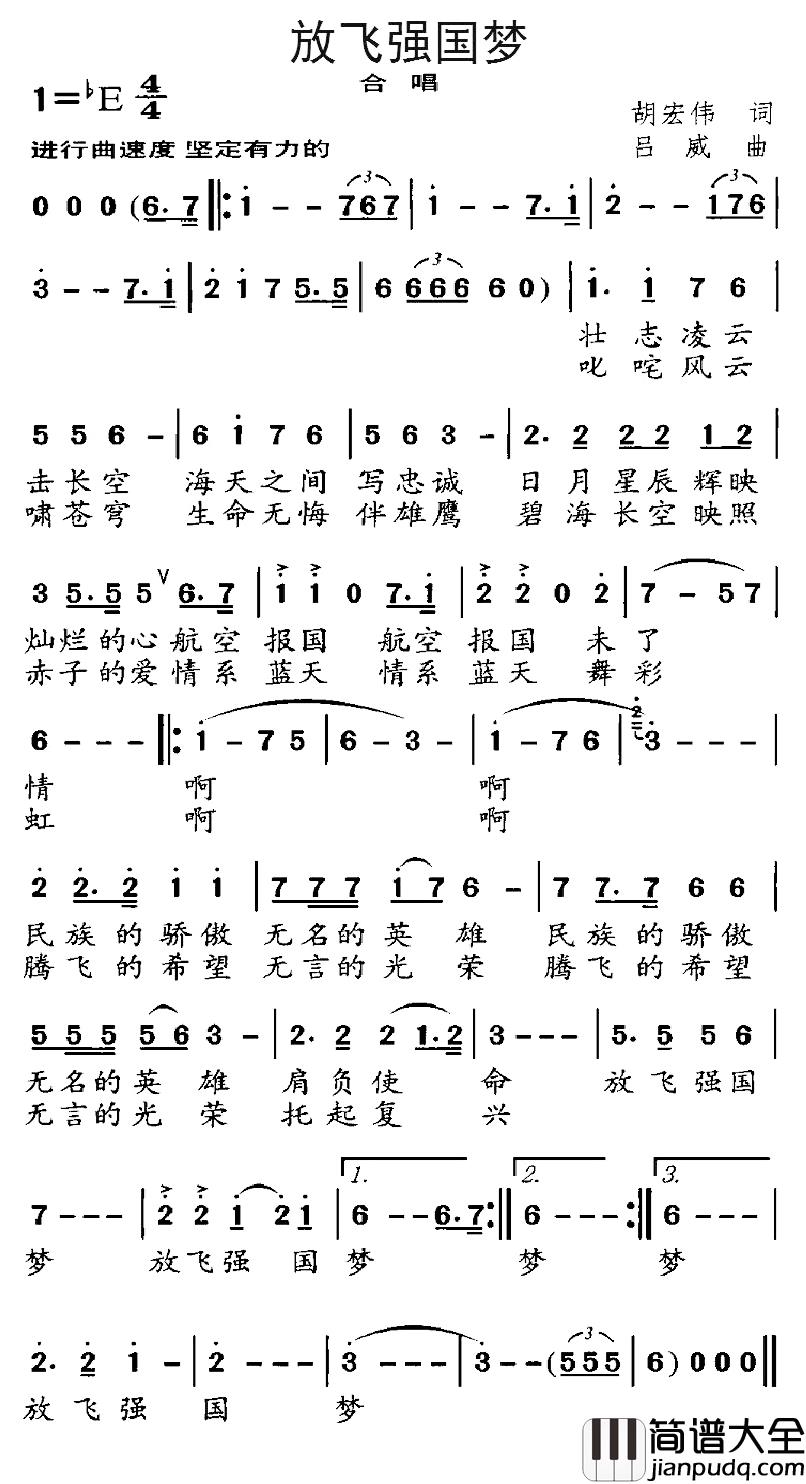 放飞强国梦
合唱
1=♭E 4/4
胡宏伟 词
进行曲速度 坚定有力的
吕威 曲
0 0 0 (6. 7 ‖: i - - 767 | i - - 7. i | 2 - - 176 |
3 - - 7. i | 2 i 7 5. 5 | 6 666 6 0) | i. i 7 6
壮志凌云
叱咤风云
5 5 6 - | 6 i 7 6 | 5 6 3 - | 2. 2 2 2 1 2 |
击长空 海天之间 写忠诚 日月星辰辉映
啸苍穹 生命无悔 伴雄鹰 碧海长空映照
3 5. 5 5 ∨ 6. 7 | i i 0 7. i | 2 2 0 2 | 7 - 5 7 |
灿烂的心航空报国 航空报国 未了
赤子的爱情系蓝天 情系蓝天 舞彩
6 - - - ‖: i - 7 5 | 6 - 3 - | i - 7 6 | 2 3 - - - |
情 啊 啊
虹 啊 啊
2 2. 2 i i | 7 7 7 i 7 6 - | 7 7. 7 6 6 |
民族的骄傲 无名的英雄 民族的骄傲
腾飞的希望 无言的光荣 腾飞的希望
5 5 5 5 6 3 - | 2. 2 2 1. 2 | 3 - - - | 5. 5 5 6 |
无名的英雄 肩负使命 放飞强国
无言的光荣 托起复兴
1. 2. 3.
7 - - - | 2 2 i 2 i | 6 - - 6. 7 :‖ 6 - - - :‖ 6 - - - |
梦 放飞强国梦 梦 梦
2. 2 i - | 2 - - - | 3 - - - | 3 - - (555 | 6) 0 0 0 ‖
放飞强国 梦
简谱大全
jianpudq.com